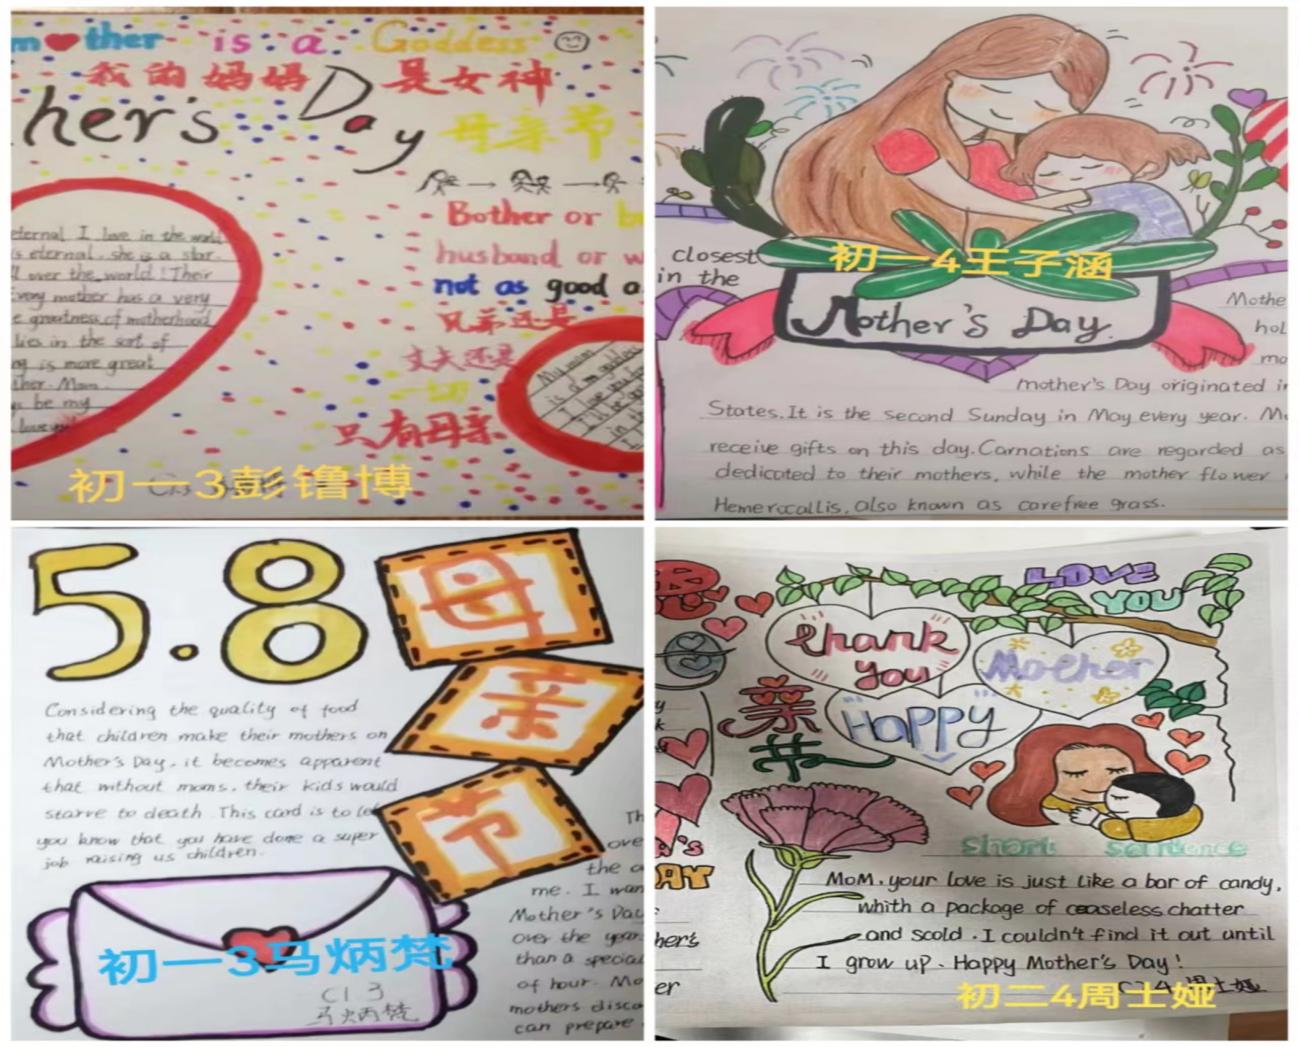 mother is a Goddess
我的妈妈是女神
her's Day 母亲节
Bother or
husband or w
not as good a
兄弟还是
丈夫还是
一切
只有母亲
eternal I love in the world
s eternal. she is a star.
l over the world! Their
very mother has a very
e greatness of motherhood
lies in the sort of
ng is more great
ther. Mom.
s be my
love you
My mom
初一3彭镥博
closest
in the
初一4王子涵
Mother's Day.
Mothe
hol
mo
mother's Day originated in
States. It is the second Sunday in May every year. Mo
receive gifts on this day. Carnations are regarded as
dedicated to their mothers, while the mother flower
Hemerocallis, also known as carefree grass.
5.8
母
亲
节
Considering the quality of food
that children make their mothers on
Mother's Day, it becomes apparent
that without moms, their kids would
starve to death. This card is to let
you know that you have done a super
job raising us children.
Th
love
the o
me. I wan
Mother's Day
over the year
than a special
of hour. Mo
mothers disco
can prepare
初一3马炳梵
C1 3
马炳梵
LOVE
YOU
thank
you
Mother
Happy
亲
's
AY
her's
er
Short Sentence
Mom, your love is just like a bar of candy,
whith a package of ceaseless chatter
and scold. I couldn't find it out until
I grow up. Happy Mother's Day!
初二4周士娅